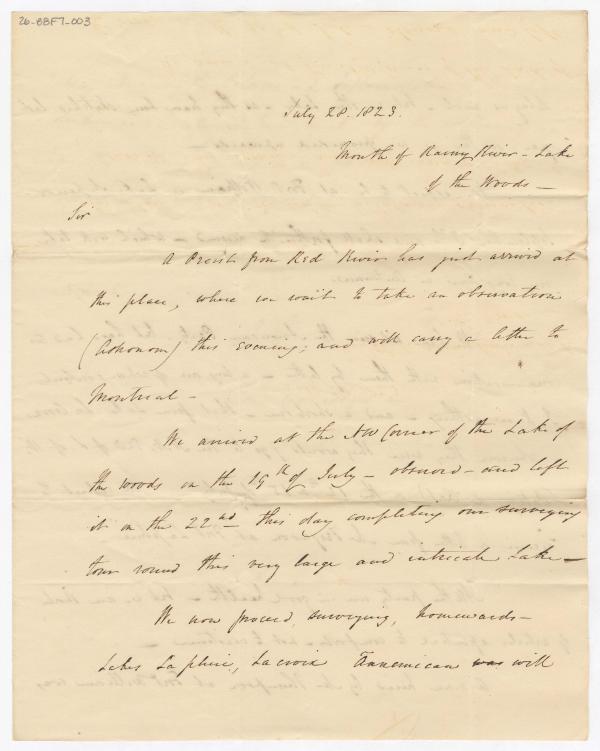 26-BBF7-003
July 28. 1823.
Mouth of Rainy River - Lake
of the Woods —
Sir
A Priest from Red River has just arrived at
this place, where we wait to take an observation
(Astronom) this evening; and will carry a letter to
Montreal -
We arrived at the NW Corner of the Lake of
the woods on the 19th of July - observed - and left
it on the 22nd this day completing our surveying
tour round this very large and intricate Lake -
We now proceed, surveying, homewards -
Lakes La pluie, Lacroix will